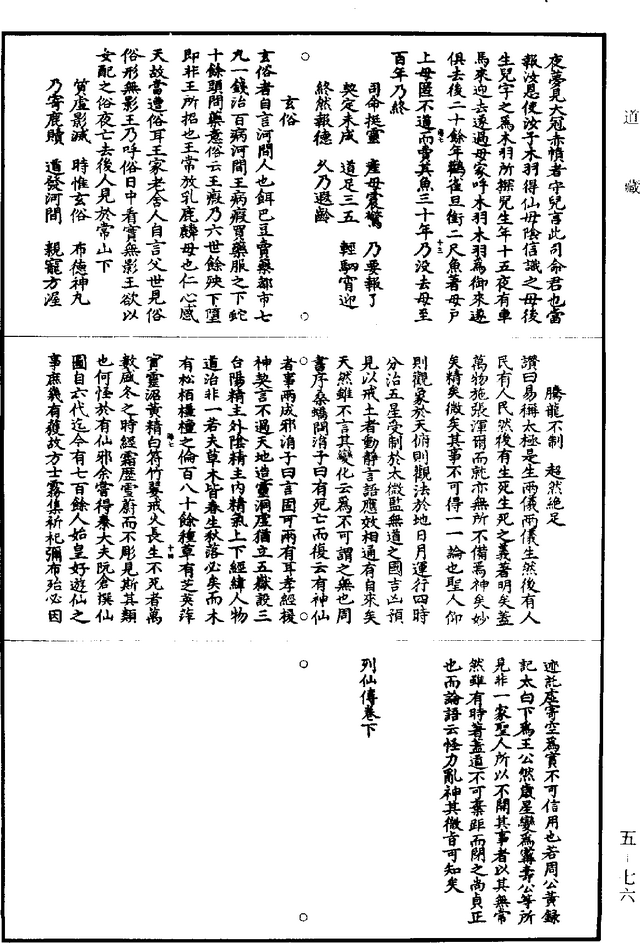 道藏
夜夢見大冠赤幘者守兒言此司命君也當
報汝恩使汝子木羽得仙母陰信識之母後
生兒字之為木羽所探兒生年十五夜有車
馬來迎去遂過母家呼木羽木羽為御來遂
俱去後二十餘年鸛雀旦銜二尺魚著母戶
上母匿不道而賣其魚三十年乃没去母至
百年乃終
司命挺靈 産母震驚 乃要報了
契定未成 道足三五 輕駟宵迎
終然報德 久乃遐齡
玄俗
玄俗者自言河間人也餌巴豆賣藥都市七
九一錢治百病河間王病瘕買藥服之下蛇
十餘頭問藥意俗云王瘕乃六世餘殃下墮
即非王所招也王常放乳鹿麟母也仁心感
天故當遭俗耳王家老舍人自言父世見俗
俗形無影王乃呼俗日中看實無影王欲以
女配之俗夜亡去後人見於常山下
質虛影滅 時惟玄俗 布德神丸
乃寄鹿贖 道發河間 親寵方渥
騰龍不制 超然絶足
讚曰易稱太極是生兩儀兩儀生然後有人
民有人民然後有生死生死之義著明矣蓋
萬物施張渾爾而就亦無所不備焉神矣妙
矣精矣微矣其事不可得一一論也聖人仰
則觀象於天俯則觀法於地日月運行四時
分治五星受制於太微監無道之國吉凶預
見以戒土者動靜言語應效相通有自來矣
天然雖不言其變化云為不可謂之無也周
書序桑矯問涓子曰有死亡而復云有神仙
者事兩成邪涓子曰言固可兩有耳孝經援
神契言不過天地造靈洞虛猶立五嶽設三
台陽精主外陰精主内精氣上下經緯人物
道治非一若夫草木皆春生秋落必矣而木
有松栢橿檀之倫百八十餘種草有芝英萍
實靈沼黃精白符竹翣戒火長生不死者萬
數盛冬之時經霜歷雪蔚而不彫見斯其類
也何怪於有仙邪余嘗得秦大夫阮倉撰仙
圖自六代迄今有七百餘人始皇好遊仙之
事庶幾有獲故方士霧集祈祀彌布殆必因
迹託虛寄空爲實不可信用也若周公黃録
記太白下爲王公然歲星變爲甯壽公等所
見非一家聖人所以不開其事者以其無常
然雖有時著蓋道不可棄距而閉之尚貞正
也而論語云怪力亂神其微旨可知矣
列仙傳卷下
五-七六